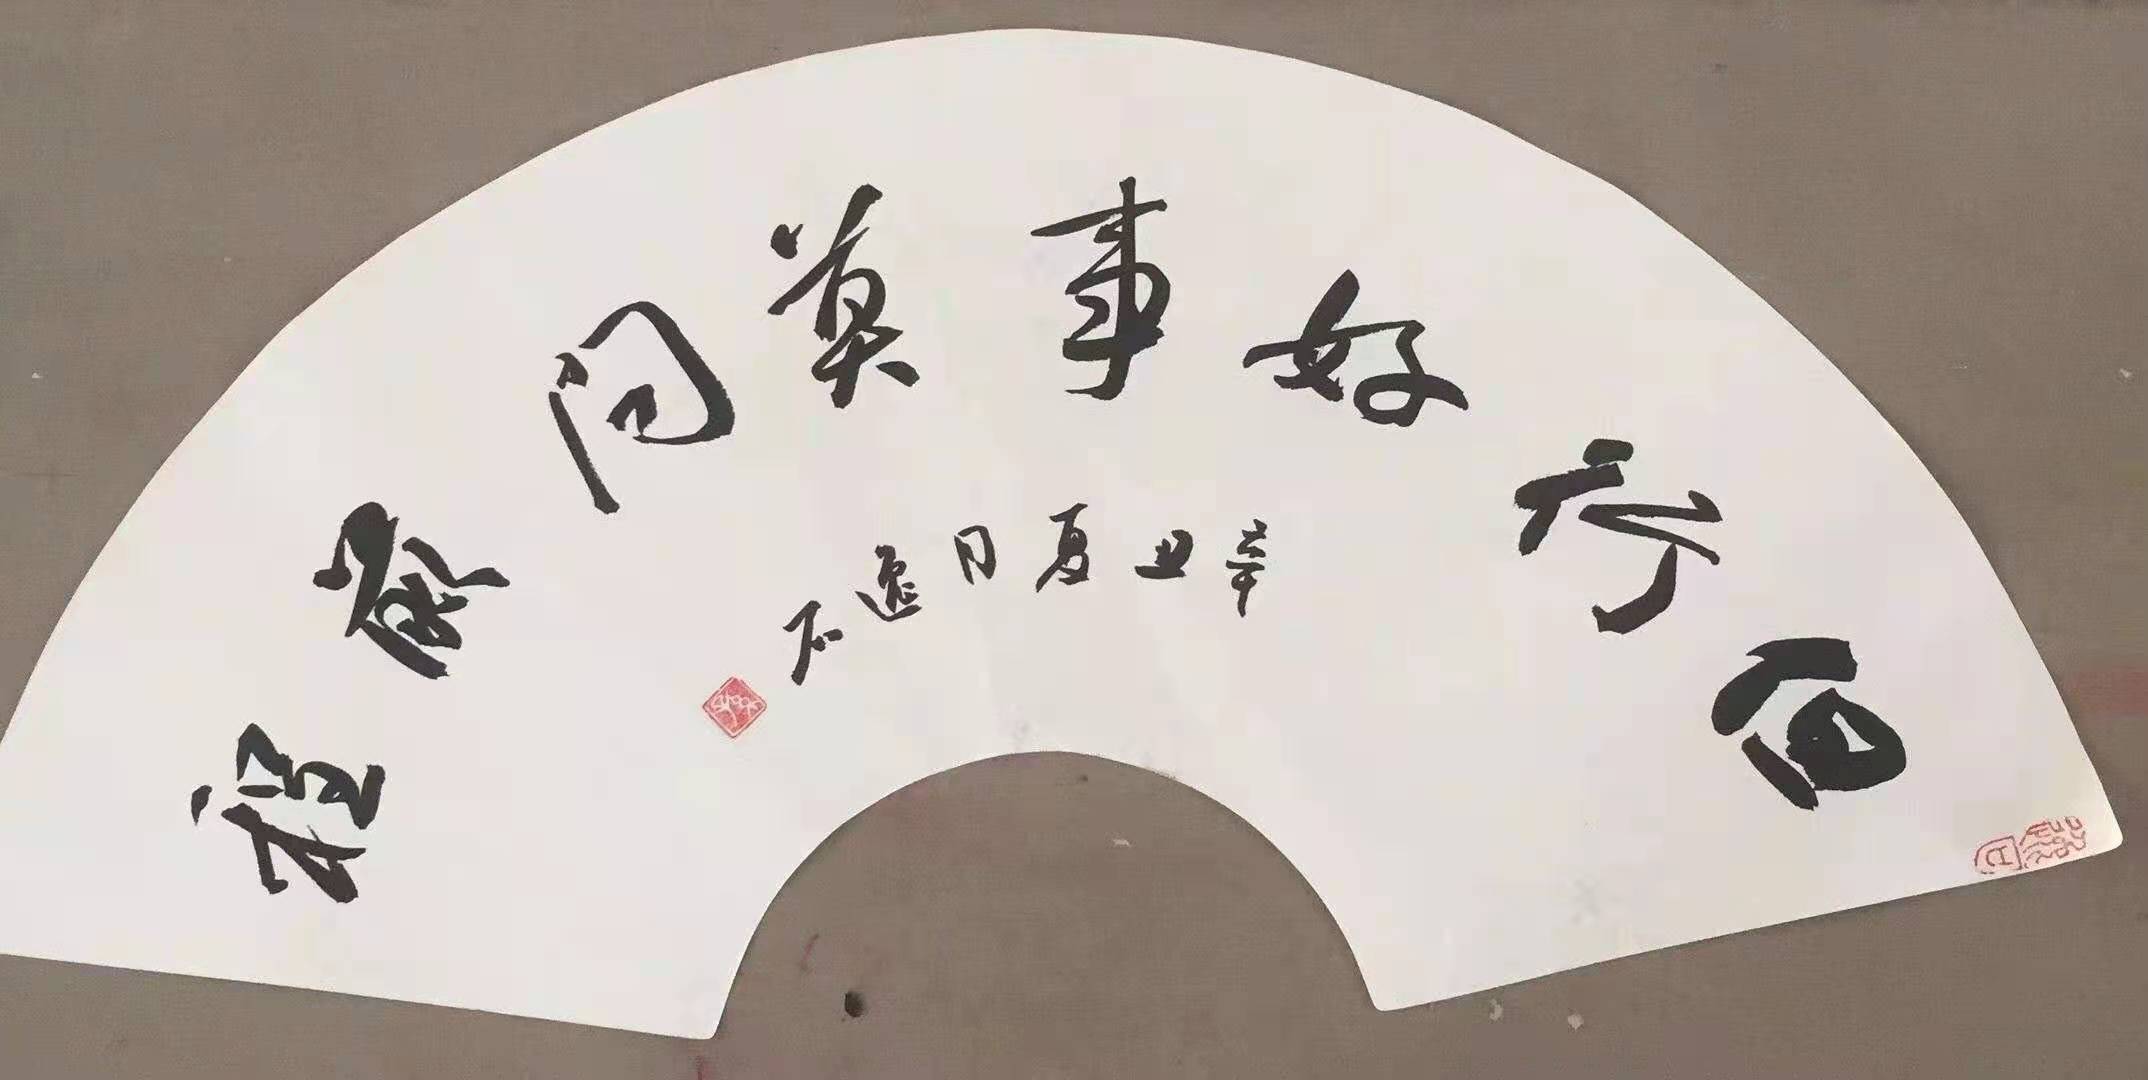 但行好事莫问前程
辛丑夏月逸石